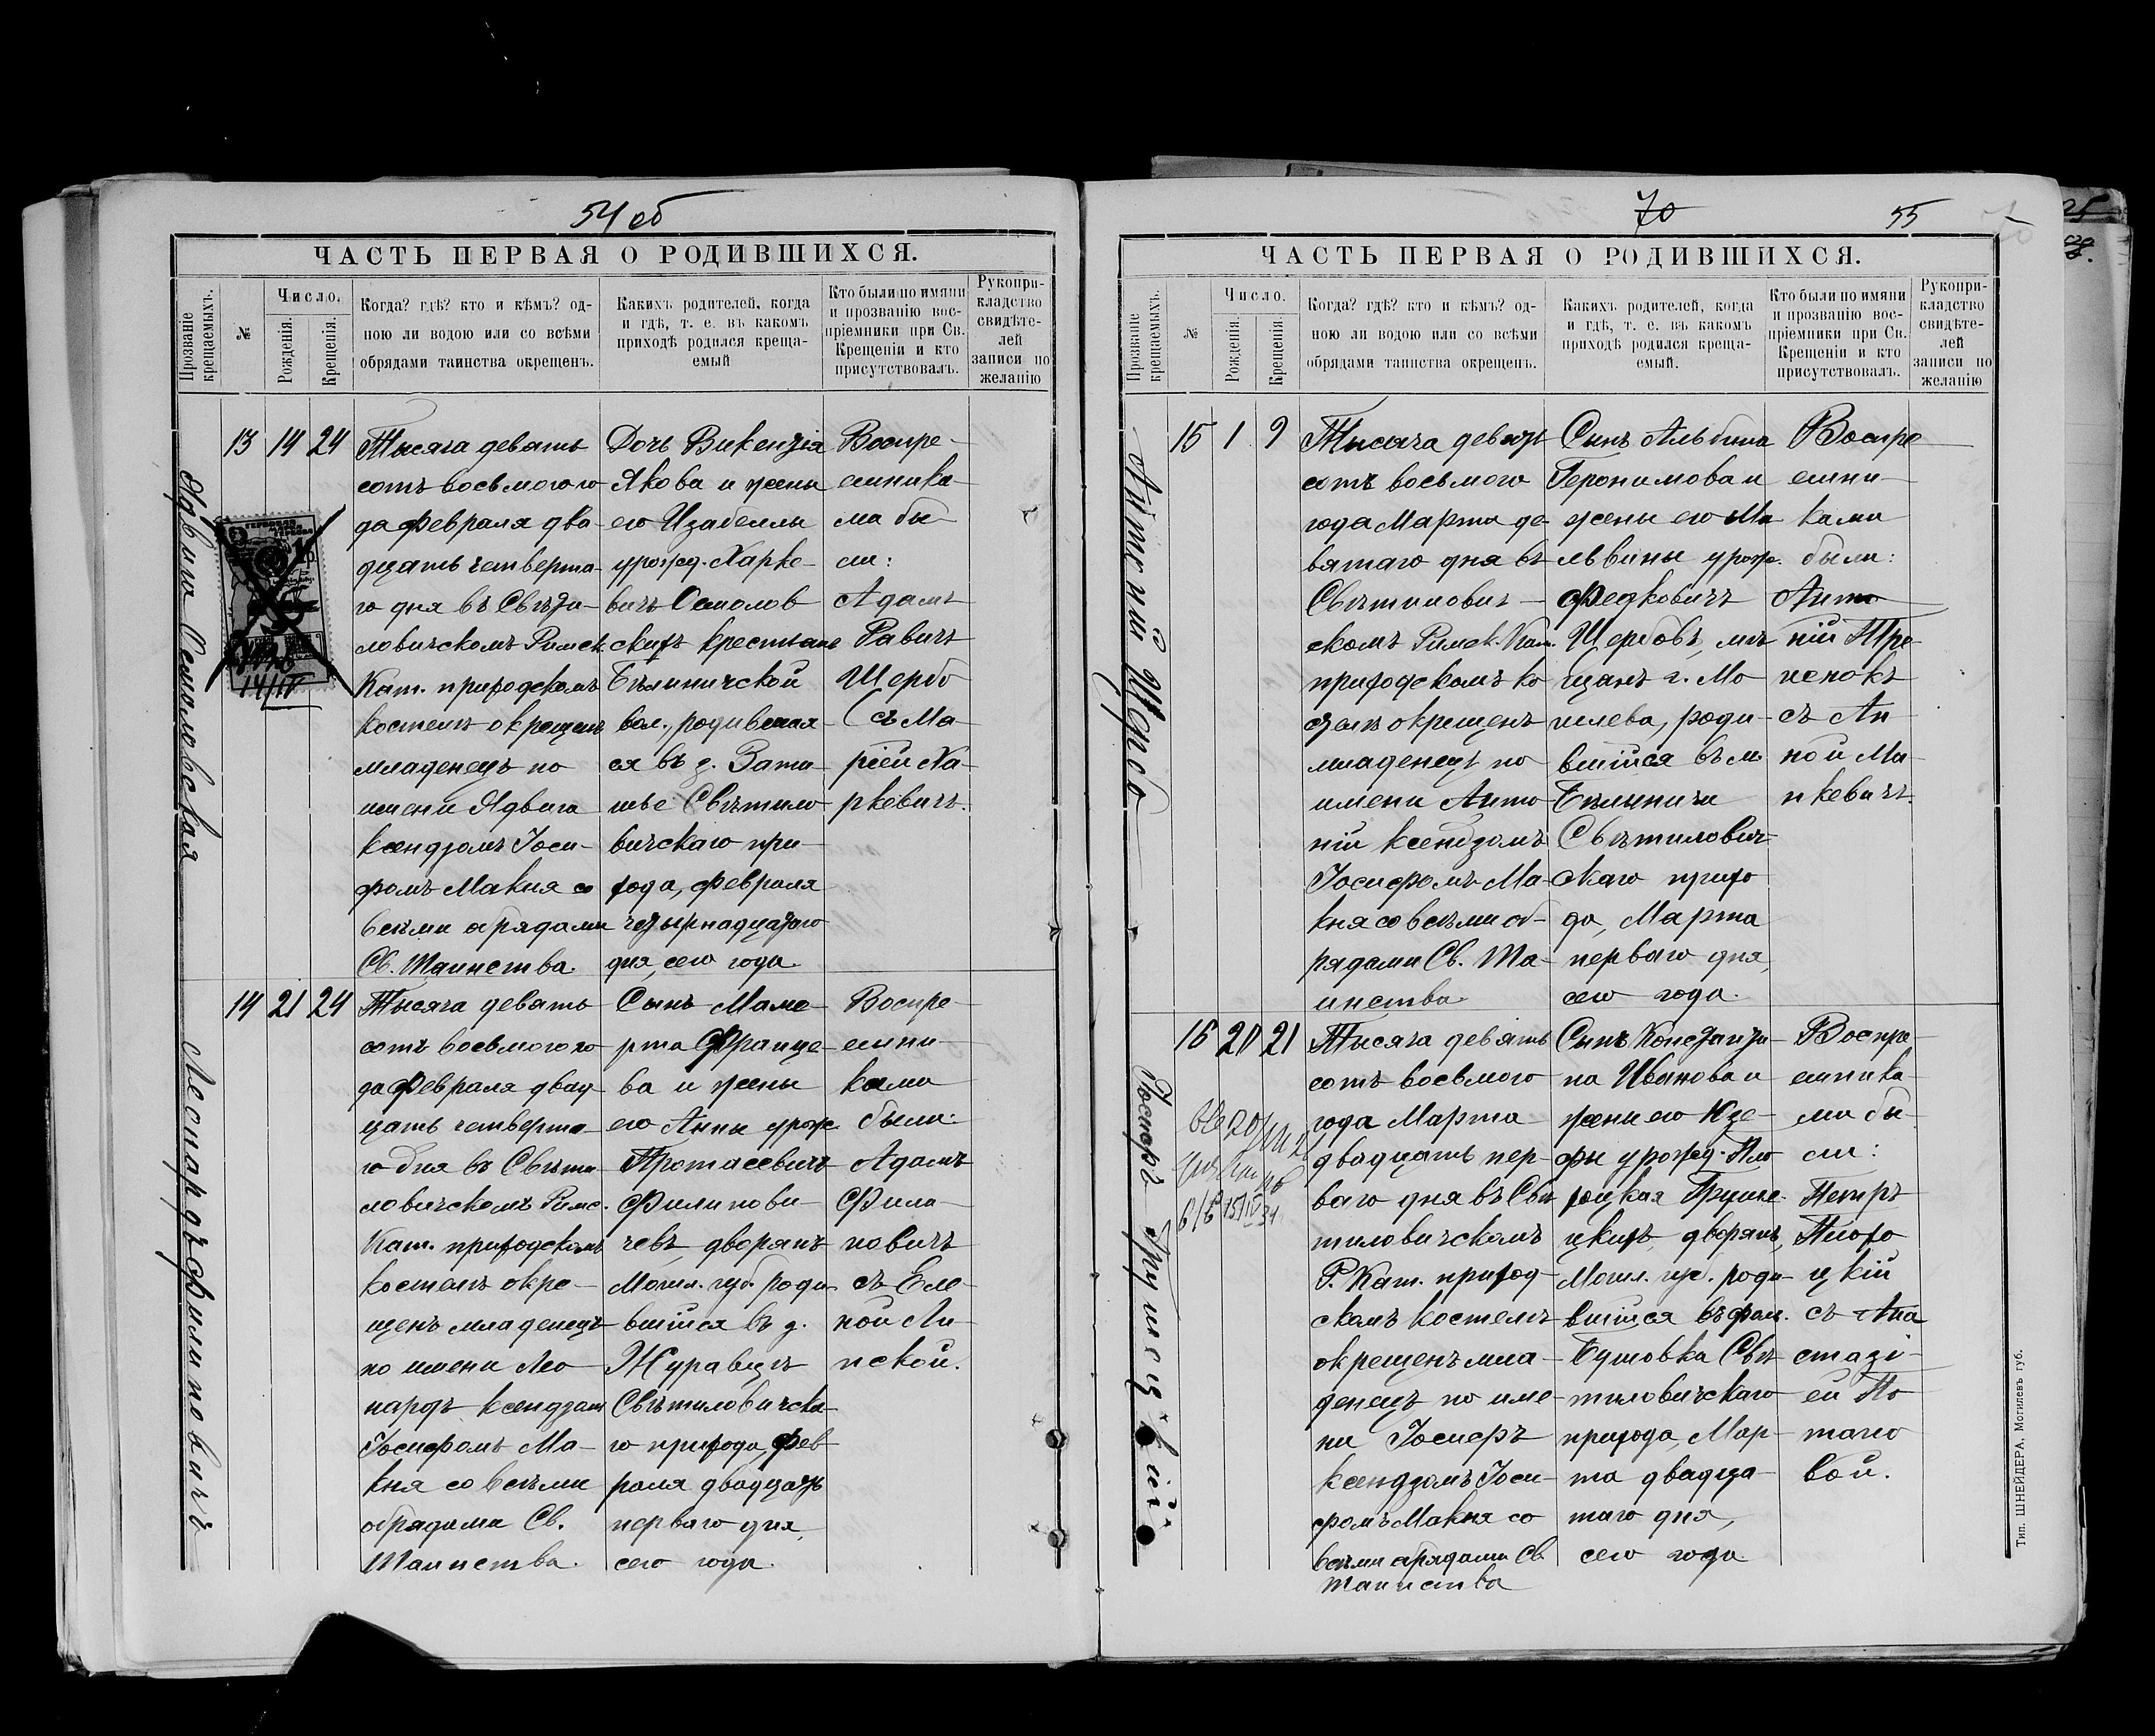 54 об
ЧАСТЬ ПЕРВАЯ О РОДИВШИХСЯ.
Прозваніе крещаемыхъ.
№
Число.
Рожденія.
Крещенія.
Когда? гдѣ? кто и кѣмъ? од-
ною ли водою или со всѣми
обрядами таинства окрещенъ.
Какихъ родителей, когда
и гдѣ, т. е. въ какомъ
приходѣ родился креща-
емый
Кто были по имяни
и прозванію вос-
пріемники при Св.
Крещеніи и кто
присутствовалъ.
Рукопри-
кладство
свидѣте-
лей
записи по
желанію
Ядвига Осмоловская
13 14 24
Тысяча девять
сотъ восьмого го
да Февраля два-
дцать четверта-
го дня въ Свѣти-
ловичскомъ Римск.
Кат. приходскомъ
костелѣ окрещенъ
младенецъ по
имени Ядвига
ксендзомъ Іоси-
фомъ Макня со
всѣми обрядами
Св. Таинства.
Дочь Викентія
Якова и жены
его Изабеллы
урожд. Харке-
вичъ Осмолов
скихъ крестьянъ
Бѣлыничской
вол., родившая-
ся въ д. Зати-
шье Свѣтило-
вичскаго при-
хода, февраля
четырнадцатаго
дня, сего года.
Воспре-
емника-
ма бы-
ли:
Адамъ
Равичъ
Щербо
съ Ма-
ріей Ха-
ркевичъ.
14/IV
Леонардъ Филиповичъ
14 21 24
Тысяча девять
сотъ восьмого го
да Февраля двад-
цать четверта-
го дня въ Свѣти-
ловичскомъ Римс.
Кат. приходскомъ
костелѣ окре-
щенъ младенецъ
по имени Лео-
нардъ ксендзомъ
Іосифомъ Ма-
кня со всѣми
обрядами Св.
Таинства.
Сынъ Маме-
рта Францe-
ва и жены
его Анны урож.
Протасевичъ
Филипови-
чевъ, дворянъ
Могил. губ. роди-
вшійся въ д.
Журавецъ
Свѣтиловичска-
го прихода, Фев-
раля двадцать
перваго дня,
сего года.
Воспре-
емни-
ками
были:
Адамъ
Фили-
повичъ
съ Еле-
ной Ли-
пской.
70
55
ЧАСТЬ ПЕРВАЯ О РОДИВШИХСЯ.
Прозваніе крещаемыхъ.
№
Число.
Рожденія.
Крещенія.
Когда? гдѣ? кто и кѣмъ? од-
ною ли водою или со всѣми
обрядами таинства окрещенъ.
Какихъ родителей, когда
и гдѣ, т. е. въ какомъ
приходѣ родился креща-
емый.
Кто были по имяни
и прозванію вос-
пріемники при Св.
Крещеніи и кто
присутствовалъ.
Рукопри-
кладство
свидѣте-
лей
записи по
желанію
Антоній Щербо
15 1 9
Тысяча девять
сотъ восьмого
года Марта де-
вятаго дня въ
Свѣтилович-
скомъ Римск. Кат.
приходскомъ ко
стелѣ окрещенъ
младенецъ по
имени Анто-
ній ксендзомъ
Іосифомъ Ма-
кня со всѣми об-
рядами Св. Та-
инства.
Сынъ Альбина
Геронимова и
жены его Ма
львины урож.
Федковичъ
Щербовъ, мѣ
щанъ г. Мо
гилева, роди-
вшійся въ м.
Бѣлыничи
Свѣтилович-
скаго прихо
да, Марта
перваго дня,
сего года.
Воспре
емни-
ками
были:
Анто
ній
съ Ан-
ной Ми-
нкевичъ.
Іосифъ Грушецкій
16 20 21
Тысяча девять
сотъ восьмого
года Марта
двадцать пер-
ваго дня въ Свѣ
тиловичскомъ
Р. Кат. приход-
скомъ костелѣ
окрещенъ мла-
денецъ по име-
ни Іосифъ
ксендзомъ Іоси-
фомъ Макня со
всѣми обрядами Св.
Таинства
Сынъ Константи-
на Иванова и
жены его Юзе-
фы урожд. Пло
хоцкая Груше-
цкихъ, дворянъ,
Могил. губ. роди-
вшійся въ фол.
Бушовка Свѣ-
тиловичскаго
прихода, Мар-
та двадца-
таго дня,
сего года
Воспре-
емника-
ми бы-
ли:
Петръ
Плохо
цкій
съ Ана
стазі-
ей По-
тапо
вой.
Тип. ШНЕЙДЕРА, Могилевъ губ.